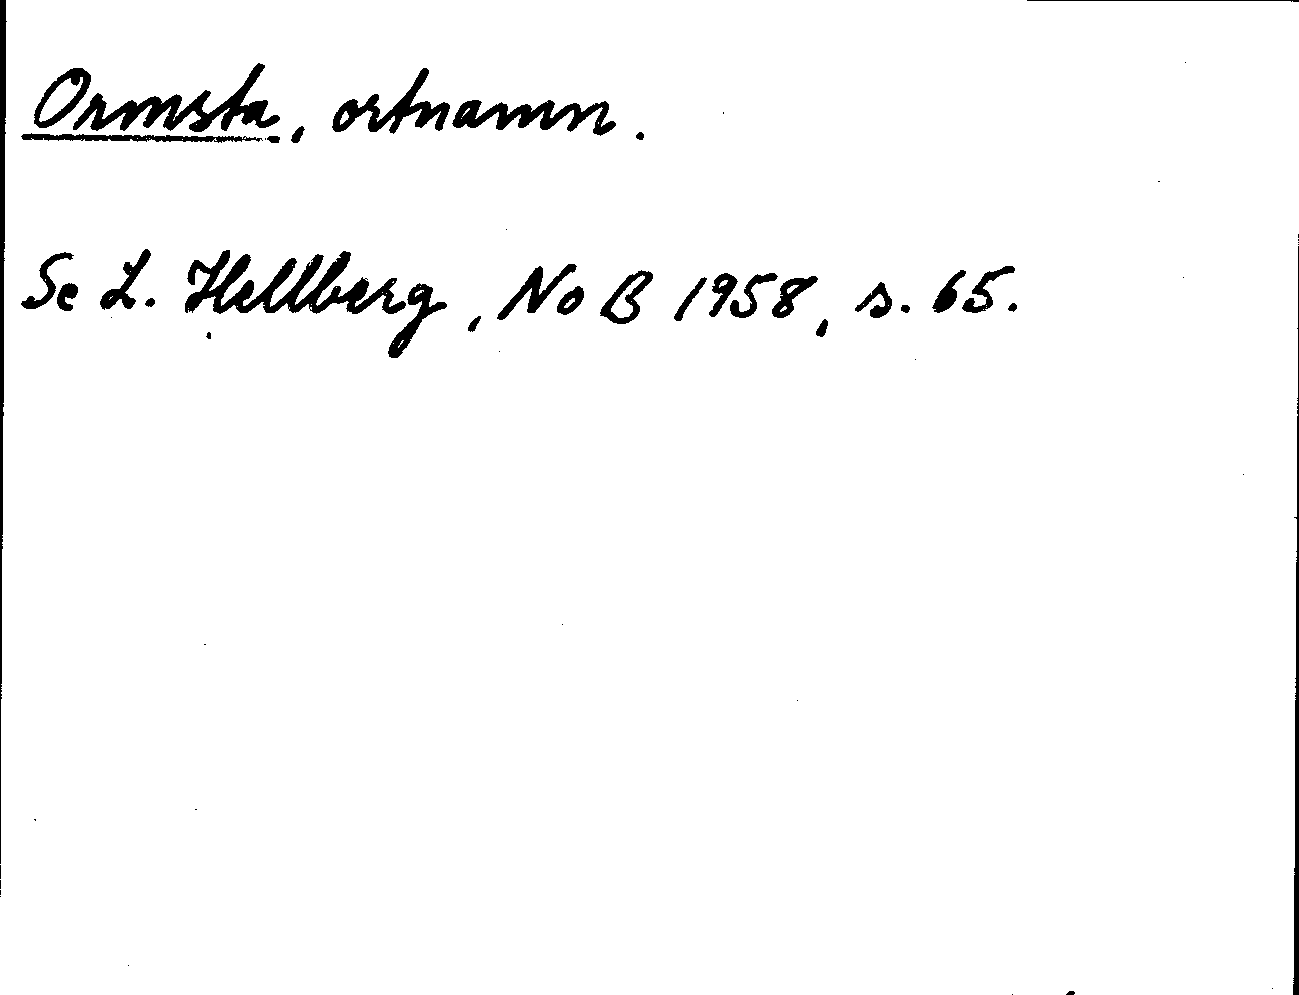 Ormsta, ortnamn.
Se L. Hellberg, NoB 1958, s. 65.